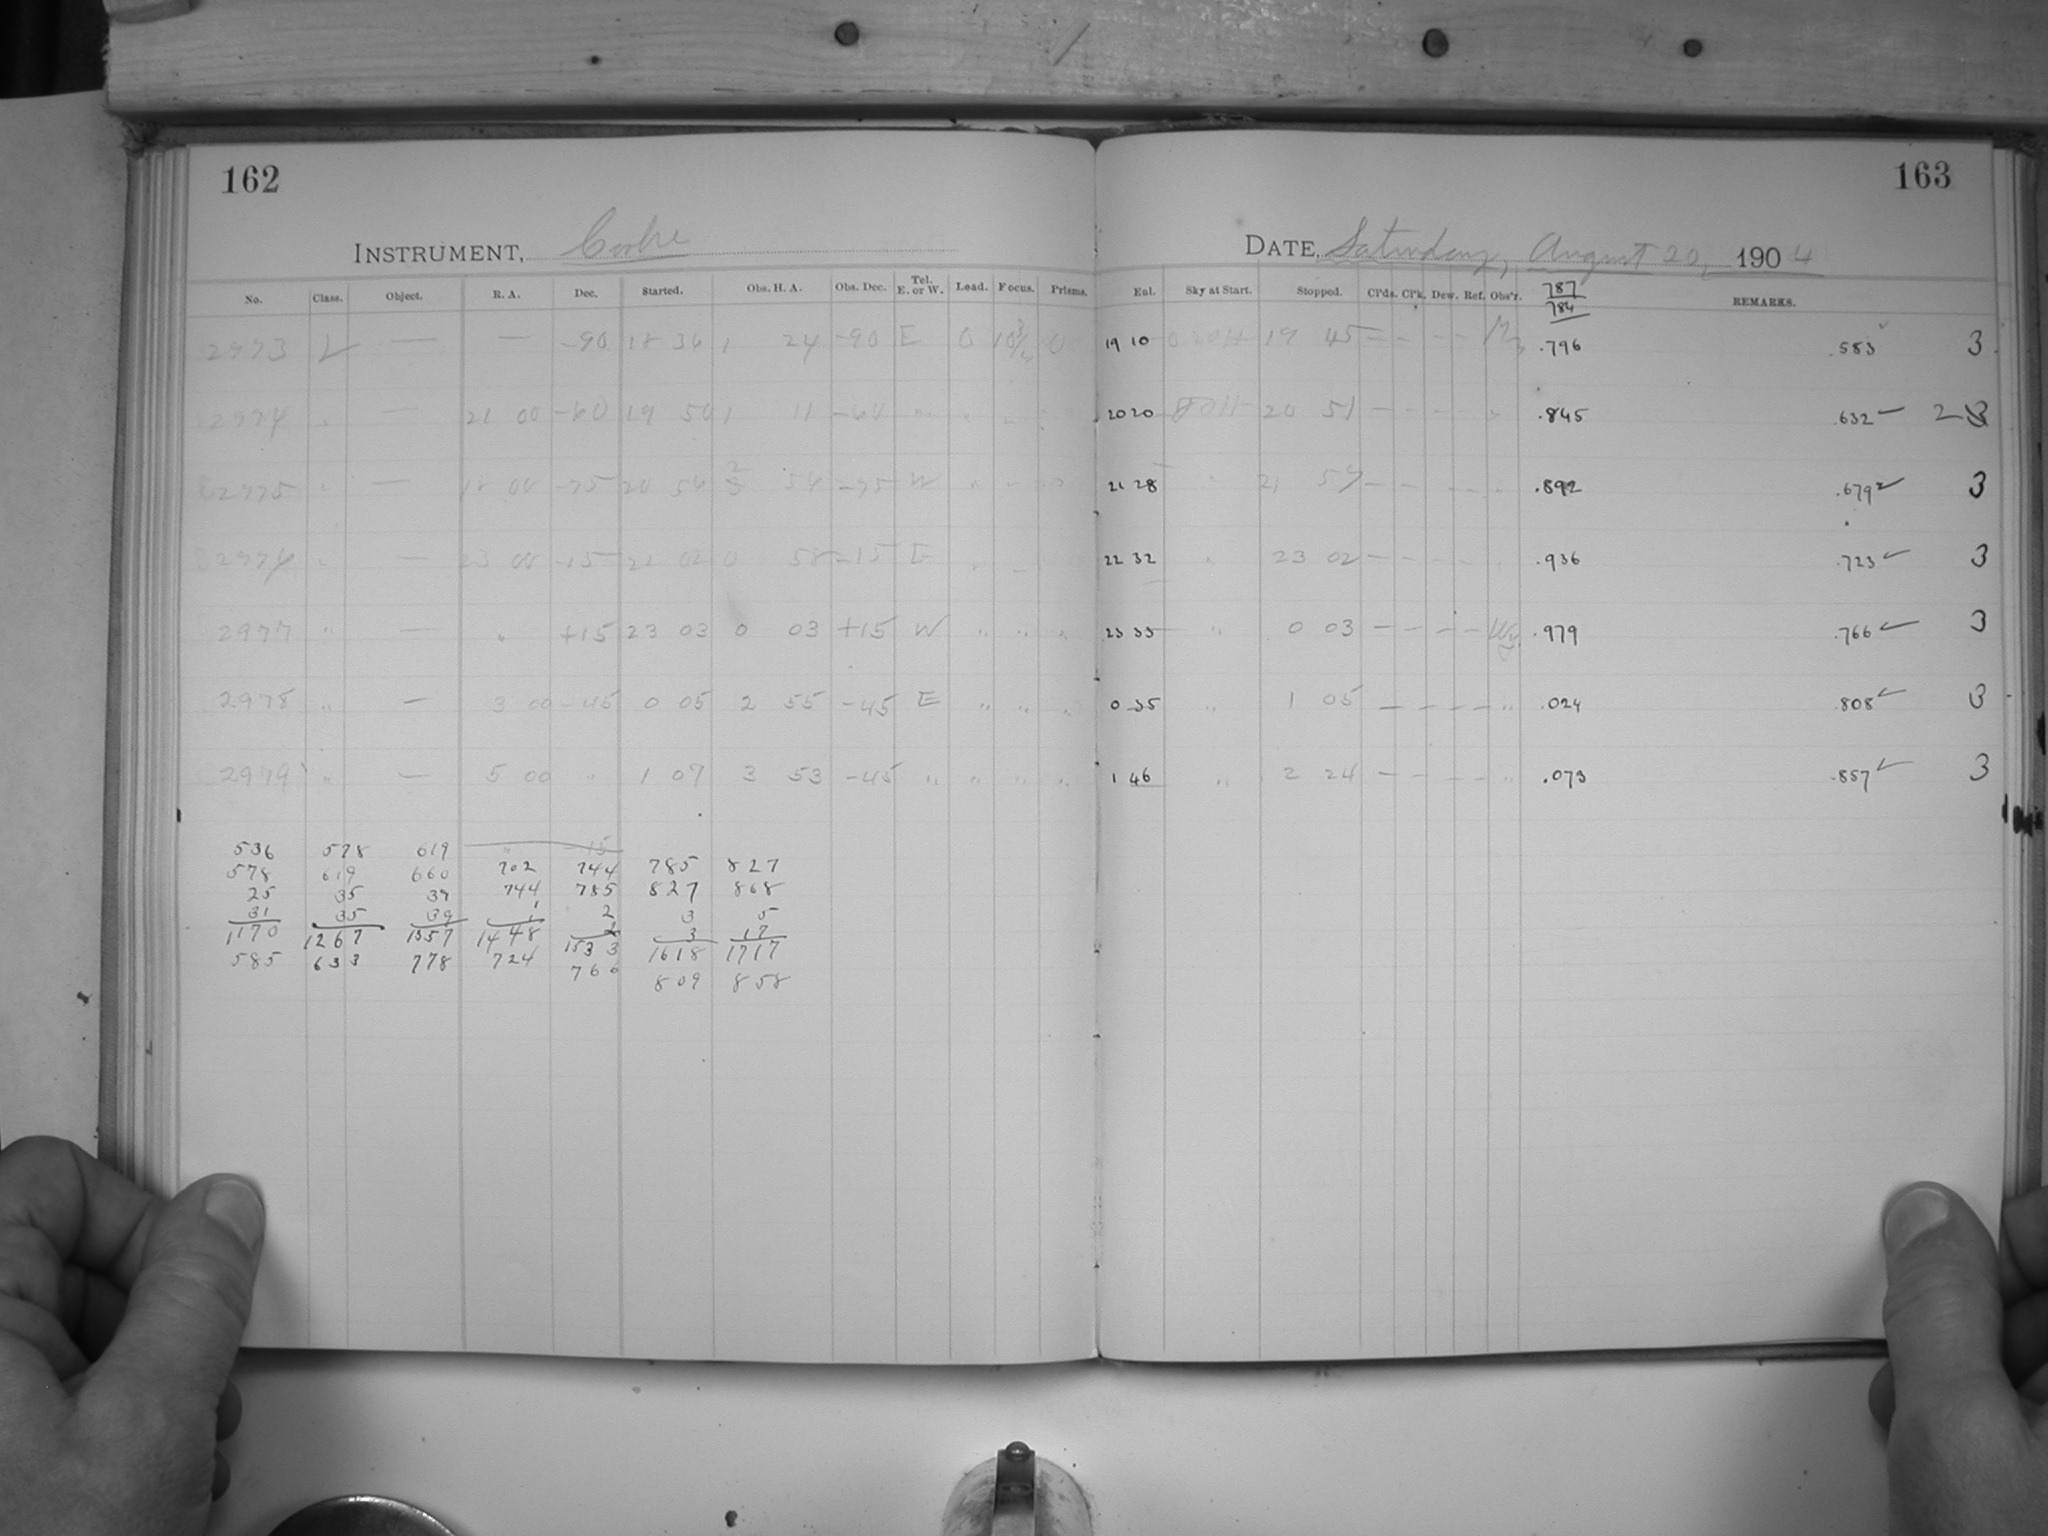 162
INSTRUMENT, Cooke
No. Class. Object. R. A. Dec. Started. Obs. H. A. Obs. Dec. Tel. E. or W. Load. Focus. Prisms.
2973 L — — -90 18 36 1 24 -90 E 0 10 3/4 0
2974 " — 21 00 -60 19 50 1 11 -60 " " "
2975 " — 18 00 -75 20 56 54 -75 W " "
" — 23 00 -15 22 02 0 58 -15 E
2977 " — " +15 23 03 0 03 +15 W " " "
2978 " — 3 00 -45 0 05 2 55 -45 E " " "
2979 " — 5 00 " 1 07 3 53 -45 " " " "
-15
536 578 619 702 744 785 827
578 619 660 744 785 827 868
25 35 39 1 2 3 5
31 35 39 3 17
1170 1267 1357 1448 1533 1618 1717
585 633 778 724 766 809 858
163
DATE, Saturday, August 20, 1904
Enl. Sky at Start. Stopped. Cl'ds. Cl'k. Dew. Ref. Obs'r. REMARKS.
787
784
19 10 19 45 — — — — .796 .583 3
20 20 20 51 — — — — " .845 .632 3
21 28 " 21 57 — — — — " .892 .679 3
22 32 " 23 02 — — — — " .936 .723 3
23 33 " 0 03 — — — — .979 .766 3
0 35 " 1 05 — — — — " .024 .808 3
1 46 " 2 24 — — — — " .073 .857 3